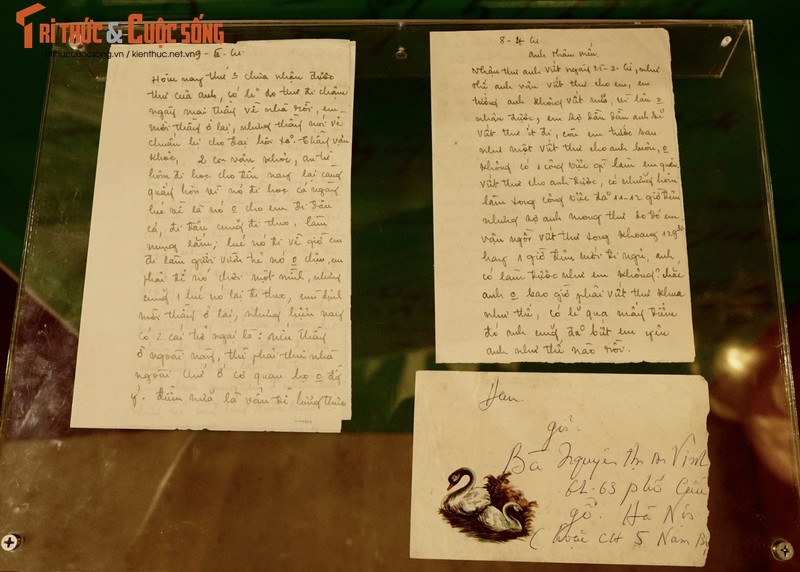 TRI THỨC & CUỘC SỐNG
trithuccuocsong.vn / kienthuc.net.vn
Hôm nay thứ 3 chưa nhận được
thư của anh, có lẽ do thư đi chậm
ngày mai thầy về nhà rồi, em
mời thầy ở lại, nhưng thầy nói về
chuẩn bị cho Đại hội xã. Thầy vẫn
khỏe, 2 con vẫn khỏe,
hôm đi học cho đến nay lại càng
quấy hơn vì nó đi học cả ngày
lúc về là nó o cho em đi đâu
cả, đi đâu cũng đi theo, làm
nũng lắm; lúc nó đi về giờ em
đi làm
phải để nó chơi một mình, nhưng
cũng 1 lúc nó lại đi theo, em định
mời thầy ở lại, nhưng hiện nay
có 2 cái trở ngại là: nếu thầy
ở ngoài này, thì phải thuê nhà
ngoài chứ ở cơ quan họ o đồng
ý. Điểm nữa là vấn đề
8-4
Anh thân mến
Nhận thư anh viết ngày
thế anh vẫn viết thư cho em, em
tưởng anh không viết nữa, vì lâu o
nhận được, em sợ dần dần anh sẽ
viết thư ít đi, còn em trước sau
như một viết thư cho anh luôn, o
không có 1 công việc gì làm em quên
viết thư cho anh được, có những hôm
làm xong công việc đã 11-12 giờ đêm
nhưng sợ anh mong thư do đó em
vẫn ngồi viết thư xong khoảng
hay 1 giờ đêm mới đi nghỉ, anh
có làm được như em không? chắc
anh o bao giờ phải viết thư khuya
như thế, có lẽ qua mấy điểm
đó anh cũng đã biết em yêu
anh như thế nào rồi.
gửi.
Bà Nguyễn Thị An Vinh
61-63 phố Cầu
gỗ. Hà Nội
(hoặc CH 5 Nam Bộ